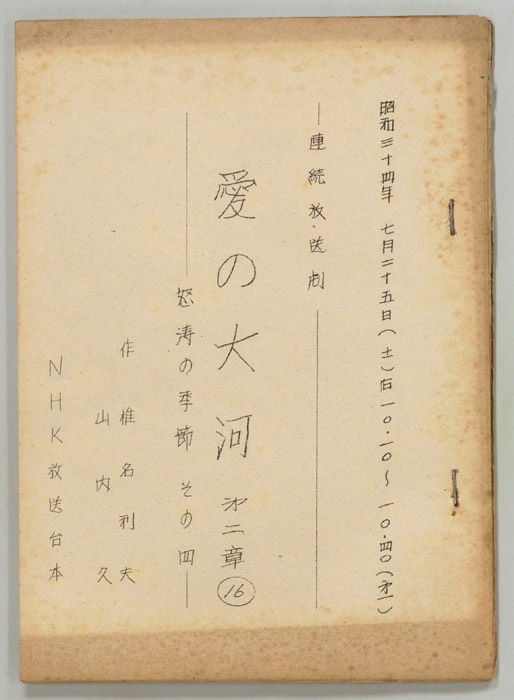 昭和三十四年 七月二十五日(土)后一〇・一〇〜一〇・四〇(才一)
連続放送劇
愛の大河 才二章 ⑯
怒涛の季節 その四
作 椎名利夫
山内久
NHK放送台本